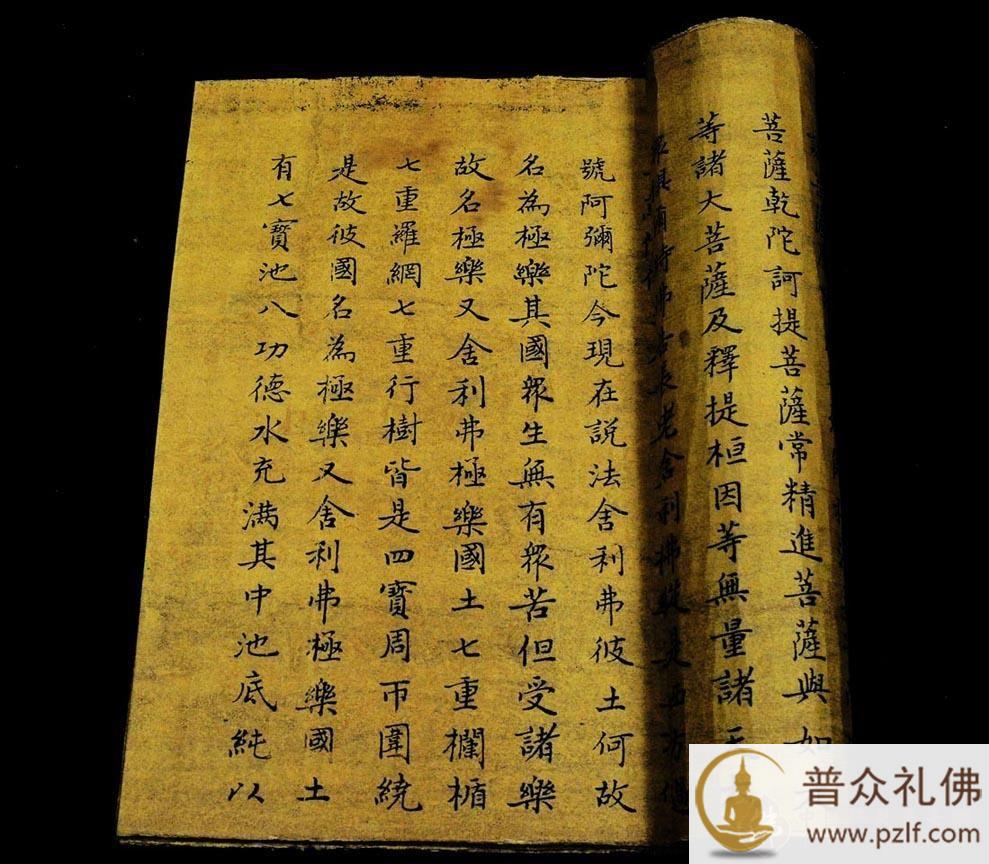 菩薩乾陀訶提菩薩常精進菩薩與如
等諸大菩薩及釋提桓因等無量諸天
長老舍利弗從是西方過
號阿彌陀今現在說法舍利弗彼土何故
名為極樂其國眾生無有眾苦但受諸樂
故名極樂又舍利弗極樂國土七重欄楯
七重羅網七重行樹皆是四寶周帀圍繞
是故彼國名為極樂又舍利弗極樂國土
有七寶池八功德水充滿其中池底純以
普众礼佛
www.pzlf.com